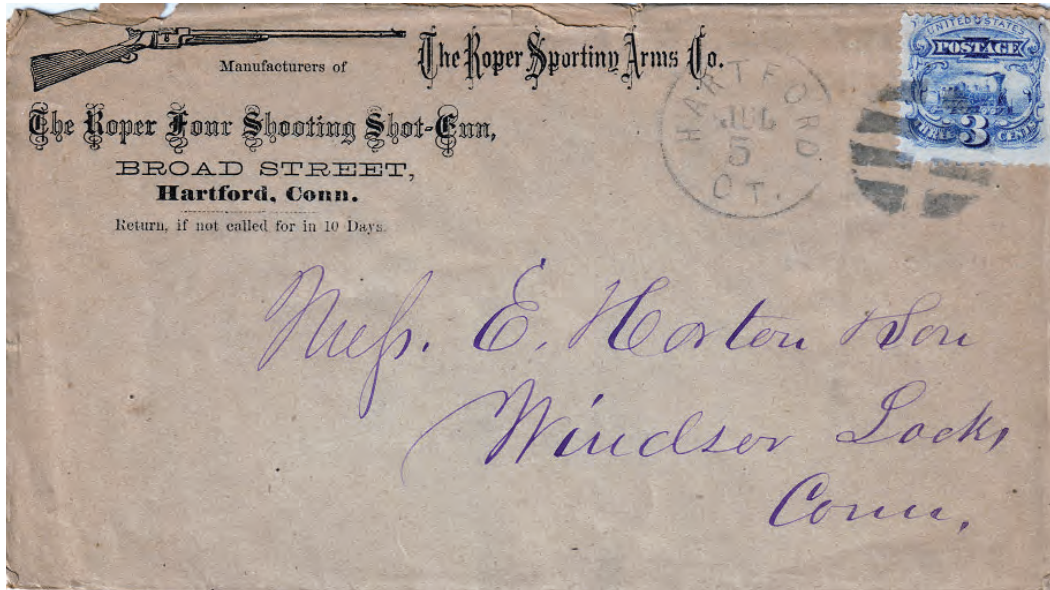 The Roper Sporting Arms Co.
Manufacturers of
The Roper Four Shooting Shot-Gun,
BROAD STREET,
Hartford, Conn.
Return, if not called for in 10 Days.
HARTFORD
JUL
5
CT.
UNITED STATES
POSTAGE
THREE 3 CENTS
Mess. E. Horton & Son
Windsor Locks,
Conn.